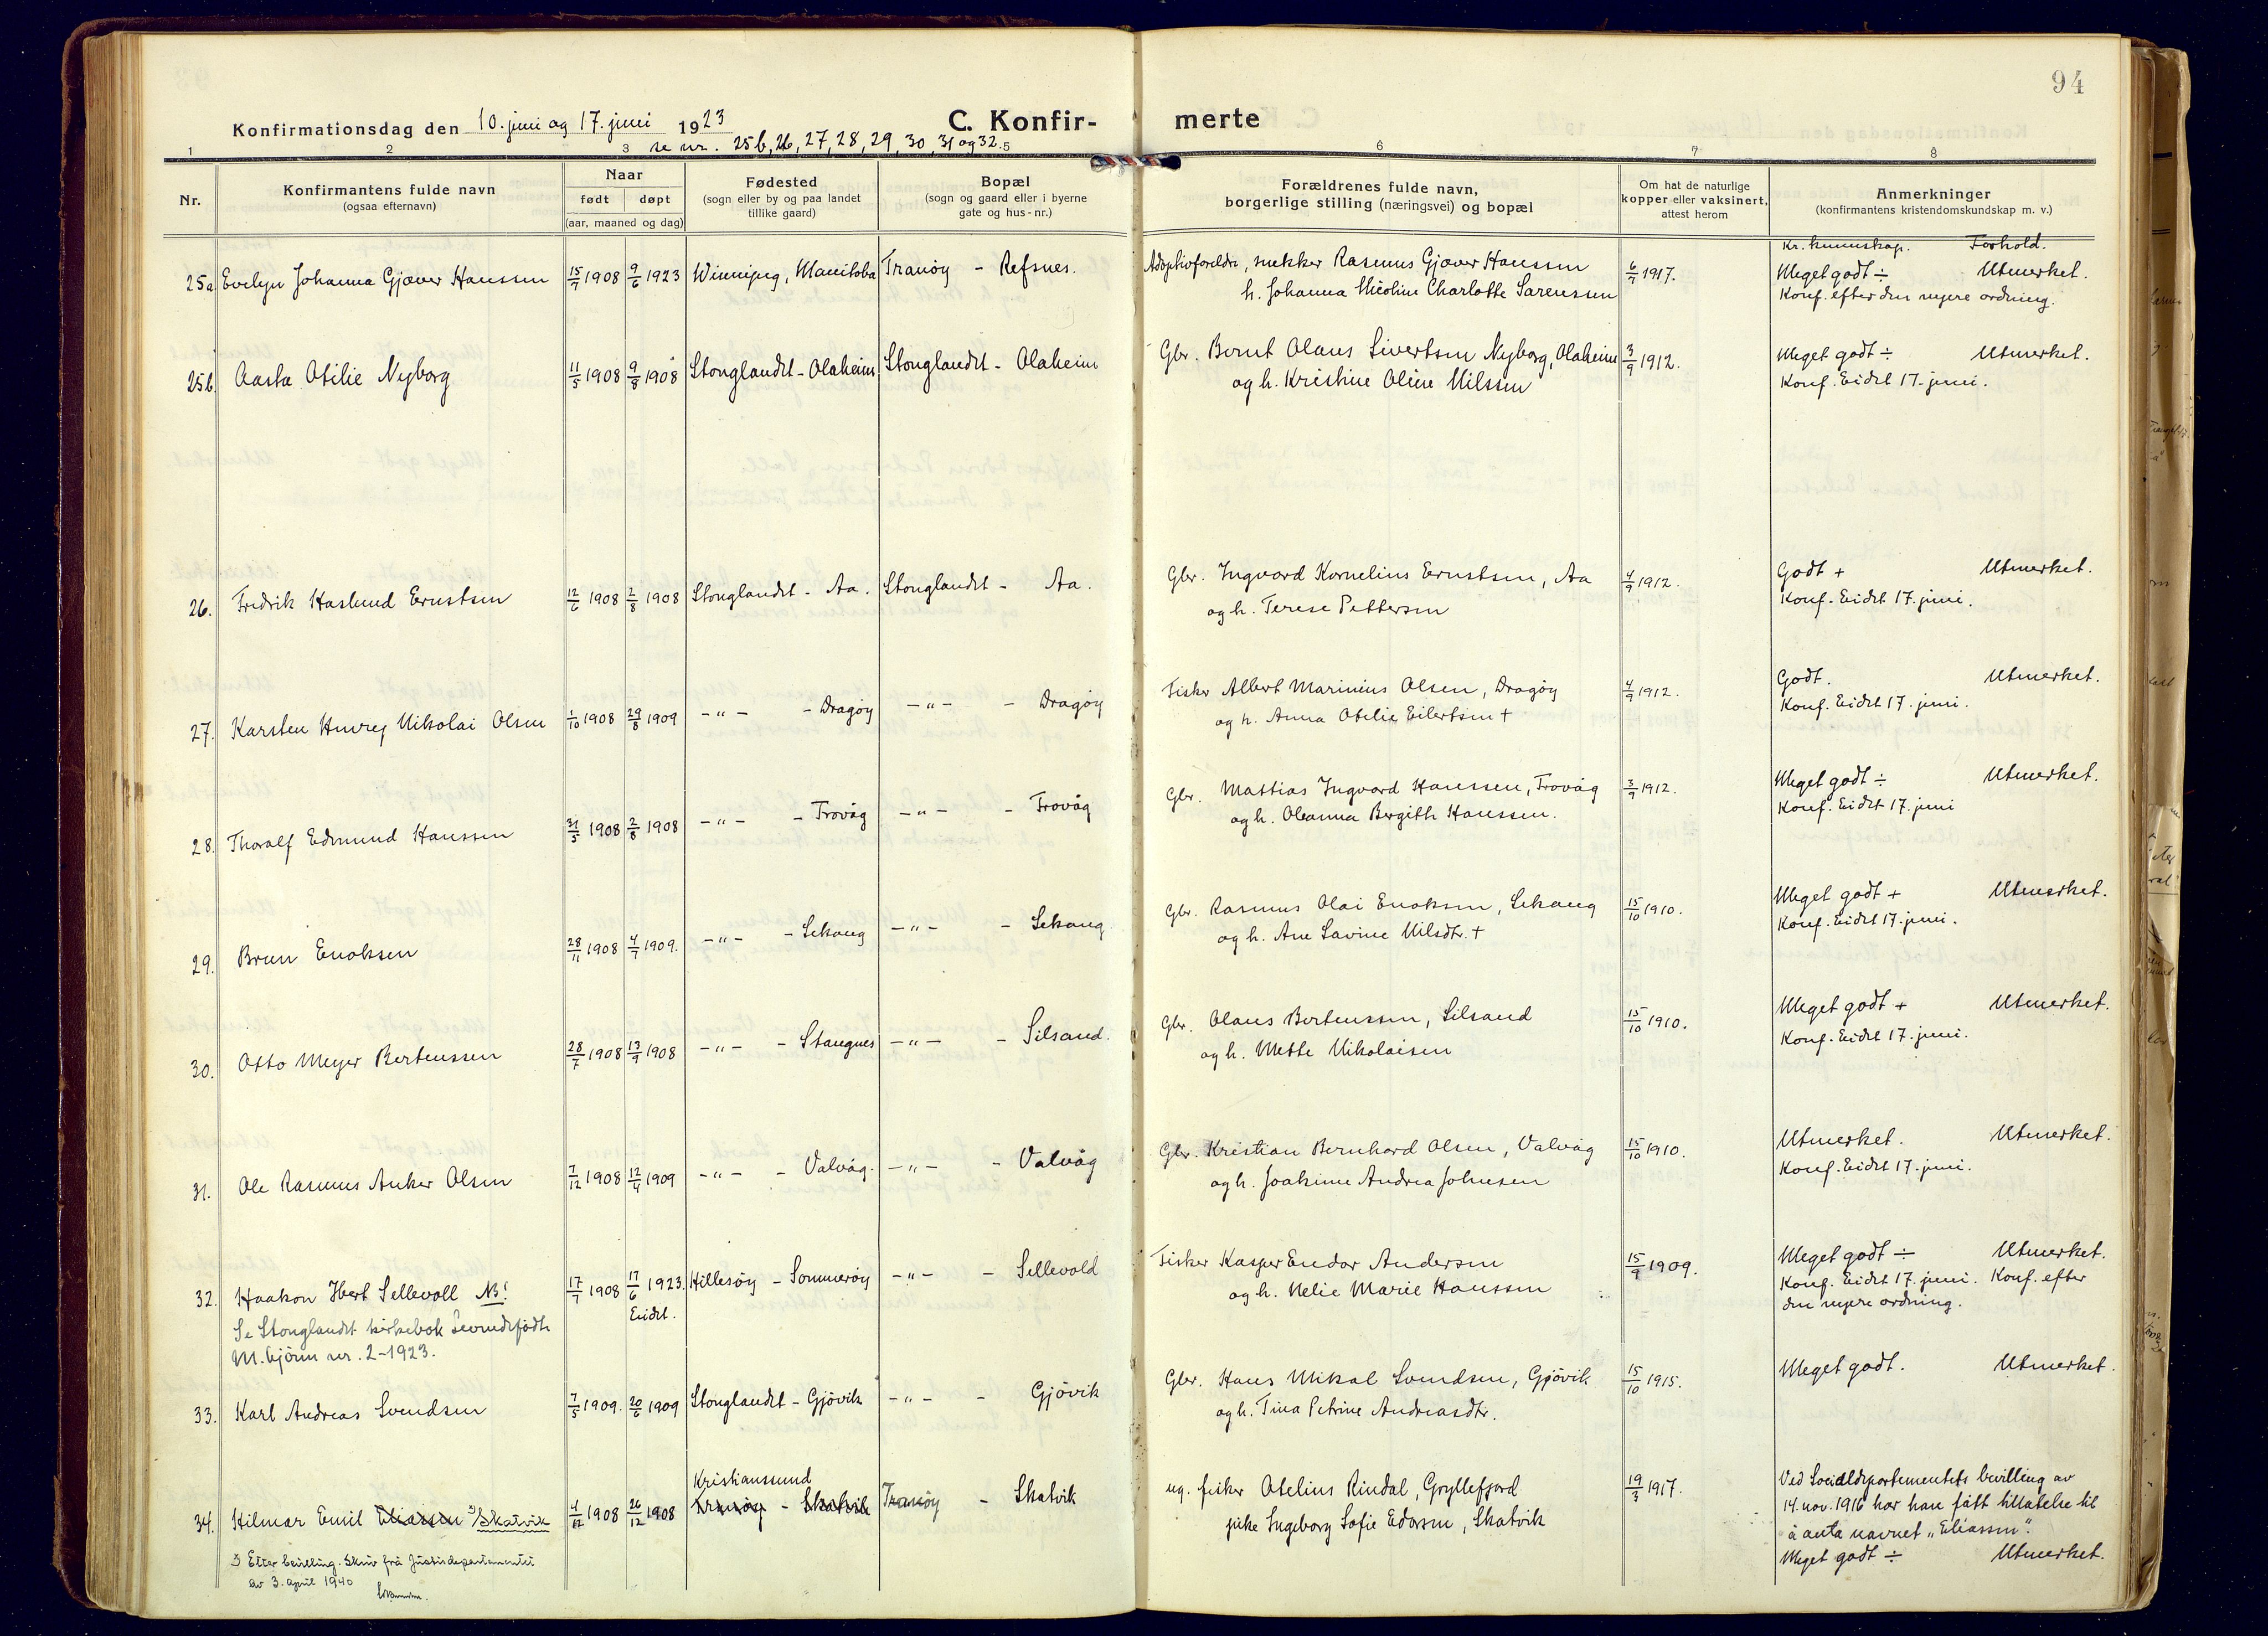 94
Konfirmationsdag den 10. juni og 17. juni 1923
C. Konfirmerte
se nr. 25b, 26, 27, 28, 29, 30, 31 og 32.
1 2 3 5 6 7 8
Nr.
Konfirmantens fulde navn
(ogsaa efternavn)
Naar
født døpt
(aar, maaned og dag)
Fødested
(sogn eller by og paa landet
tillike gaard)
Bopæl
(sogn og gaard eller i byerne
gate og hus-nr.)
Forældrenes fulde navn,
borgerlige stilling (næringsvei) og bopæl
Om hat de naturlige
kopper eller vaksinert,
attest herom
Anmerkninger
(konfirmantens kristendomskundskap m. v.)
Kr. kunnskap. Forhold.
25a Evelyn Johanna Gjæver Hanssen 15/7 1908 9/6 1923 Winnipeg, Manitoba Tranöy - Refsnes. Adoptivforeldre, snekker Rasmus Gjæver Hanssen 6/7 1917. Meget godt ÷ Utmerket.
h. Johanna Nicoline Charlotte Sørenssen Konf. efter den nyere ordning.
25b. Aasta Otilie Nyborg 11/5 1908 9/8 1908 Stonglandet - Olaheim Stonglandet - Olaheim Gbr. Bernt Olaus Sivertsen Nyborg, Olaheim 3/9 1912. Meget godt ÷ Utmerket.
og h. Kristine Oline Nilssen Konf. Eidet 17. juni.
26. Fredrik Haslund Ernstsen 12/6 1908 2/8 1908 Stonglandet - Aa. Stonglandet - Aa. Gbr. Ingvard Kornelius Ernstsen, Aa 4/9 1912. Godt + Utmerket.
og h. Terese Pettersen Konf. Eidet 17. juni.
27. Karsten Henry Nikolai Olsen 1/10 1908 29/8 1909 -"- - Dragöy -"- - Dragöy Fisker Albert Marinius Olsen, Dragöy 4/9 1912. Godt. Utmerket.
og h. Anna Otelie Eilertsen + Konf. Eidet 17. juni.
28. Thoralf Edmund Hanssen 31/5 1908 2/8 1908 -"- - Trovåg -"- - Trovåg Gbr. Mattias Ingvard Hanssen, Trovåg 3/9 1912. Meget godt ÷ Utmerket.
og h. Oleanna Bergith Hanssen. Konf. Eidet 17. juni
29. Brun Enoksen 28/11 1908 4/7 1909. -"- - Lekang -"- - Lekang Gbr. Rasmus Olai Enoksen, Lekang 15/10 1910. Meget godt + Utmerket.
og h. Ane Lavine Nilsdtr. + Konf. Eidet 17. juni.
30. Otto Meyer Bertenssen 28/7 1908 13/9 1908 -"- - Stangnes -"- - Silsand. Gbr. Olaus Bertenssen, Silsand 15/10 1910. Meget godt + Utmerket.
og h. Mette Nikolaisen Konf. Eidet 17. juni.
31. Ole Rasmus Anker Olsen 7/12 1908 12/4 1909 -"- - Valvåg. -"- - Valvåg Gbr. Kristian Bernhard Olsen, Valvåg 15/10 1910. Utmerket. Utmerket.
og h. Joakime Andrea Johnesen Konf. Eidet 17. juni.
32. Haakon Ibert Sellevoll NB! 17/7 1908 17/6 1923. Hillesöy - Sommeröy -"- - Sellevold Fisker Kasper Endor Andersen 15/9 1909. Meget godt ÷ Utmerket.
Eidet. og h. Nelie Marie Hanssen Konf. Eidet 17. juni. Konf. efter
Se Stonglandet kirkebok Levendefødte den nyere ordning.
M. kjønn nr. 2-1923.
33. Karl Andreas Svendsen 7/5 1909. 20/6 1909 Stonglandet - Gjövik -"- - Gjövik Gbr. Hans Mikal Svendsen, Gjövik 15/10 1915. Meget godt. Utmerket.
og h. Tina Petrine Andreasdtr.
Kristianssund
34. Hilmar Emil Eliassen Skatvik 4/12 1908 26/12 1908 Tranöy - Skatvik Tranöy - Skatvik ug. fisker Otelius Rindal, Gryllefjord 19/3 1917. Ved Socialdepartementets bevilling av
pike Ingeborg Sofie Edorsen, Skatvik 14. nov. 1916 har han fått tillatelse til
å anta navnet „Eliassen".
Meget godt ÷ Utmerket.
Etter bevilling. Skriv frå Justisdepartementet
av 3. april 1940